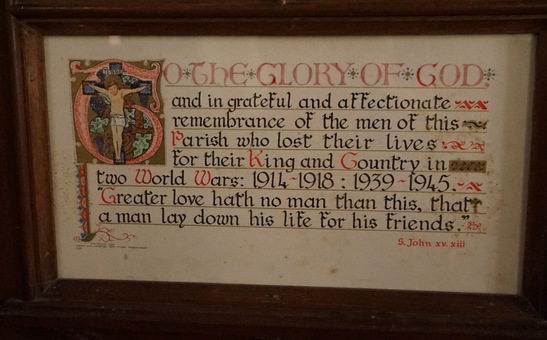 TO·THE·GLORY·OF·GOD·
and in grateful and affectionate
remembrance of the men of this
Parish who lost their lives
for their King and Country in
two World Wars: 1914-1918 : 1939-1945.
"Greater love hath no man than this, that
a man lay down his life for his friends."
S. John xv. xiii